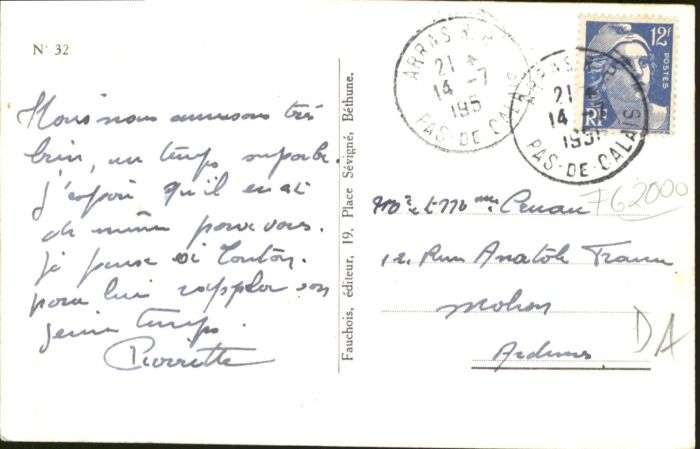 N° 32
Nous nous amusons très
bien, un temps superbe.
J'espère qu'il en est
de même pour vous.
je pense à Tonton.
pour lui rappeler son
jeune temps.
Pierrette
Fauchois, éditeur, 19, Place Sévigné, Béthune.
ARRAS R.P.
21 *
14 - 7
1951
PAS-DE-CALAIS
ARRAS R.P.
21 *
14 - 7
1951
PAS-DE-CALAIS
12F
POSTES
RF
Mr et Mme
762000
12, Rue Anatole France
Mohon
Ardennes
DA